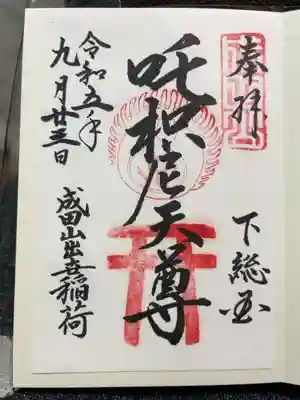 奉拝
下総国
吒枳尼天尊
令和五年
九月廿三日
成田山出世稲荷